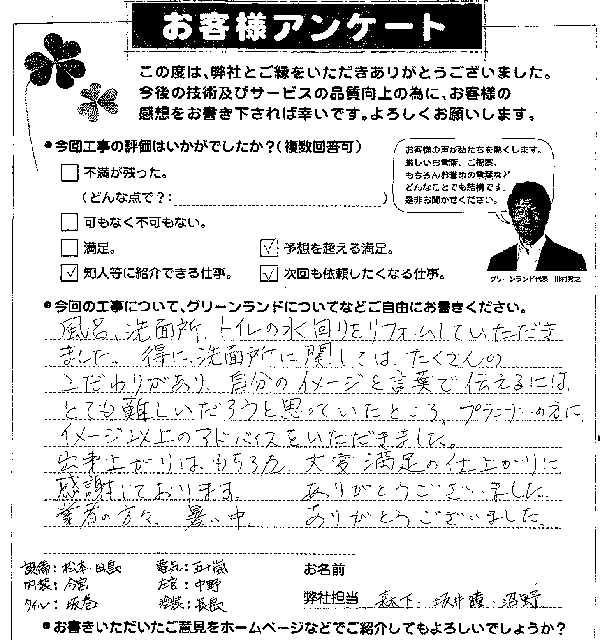 お客様アンケート
この度は、弊社とご縁をいただきありがとうございました。
今後の技術及びサービスの品質向上の為に、お客様の
感想をお書き下されば幸いです。よろしくお願いします。
●今回工事の評価はいかがでしたか?(複数回答可)
不満が残った。
(どんな点で?: )
可もなく不可もない。
満足。
予想を超える満足。
知人等に紹介できる仕事。
次回も依頼したくなる仕事。
お客様の声が私たちを熱くします。
厳しいお言葉、ご提案、
もちろんお誉めの言葉など
どんなことでも結構です。
是非お聞かせください。
グリーンランド代表
●今回の工事について、グリーンランドについてなどご自由にお書きください。
風呂、洗面所、トイレの水回りをリフォームしていただき
ました。得に、洗面所に関しては、たくさんの
こだわりがあり、自分のイメージを言葉で伝えるには、
とても難しいだろうと思っていたところ、プランナーの方に
イメージ以上のアドバイスをいただきました。
出来上がりは、もちろん、大変満足の仕上がりに
感謝しております。 ありがとうございました。
業者の方々、暑い中、 ありがとうございました。
設備:松本・田島 電気:五十嵐
内装:今宮 左官:中野
タイル: 塗装:長島
お名前
弊社担当 森下・坂井・沼野
●お書きいただいたご意見をホームページなどでご紹介してもよろしいでしょうか?